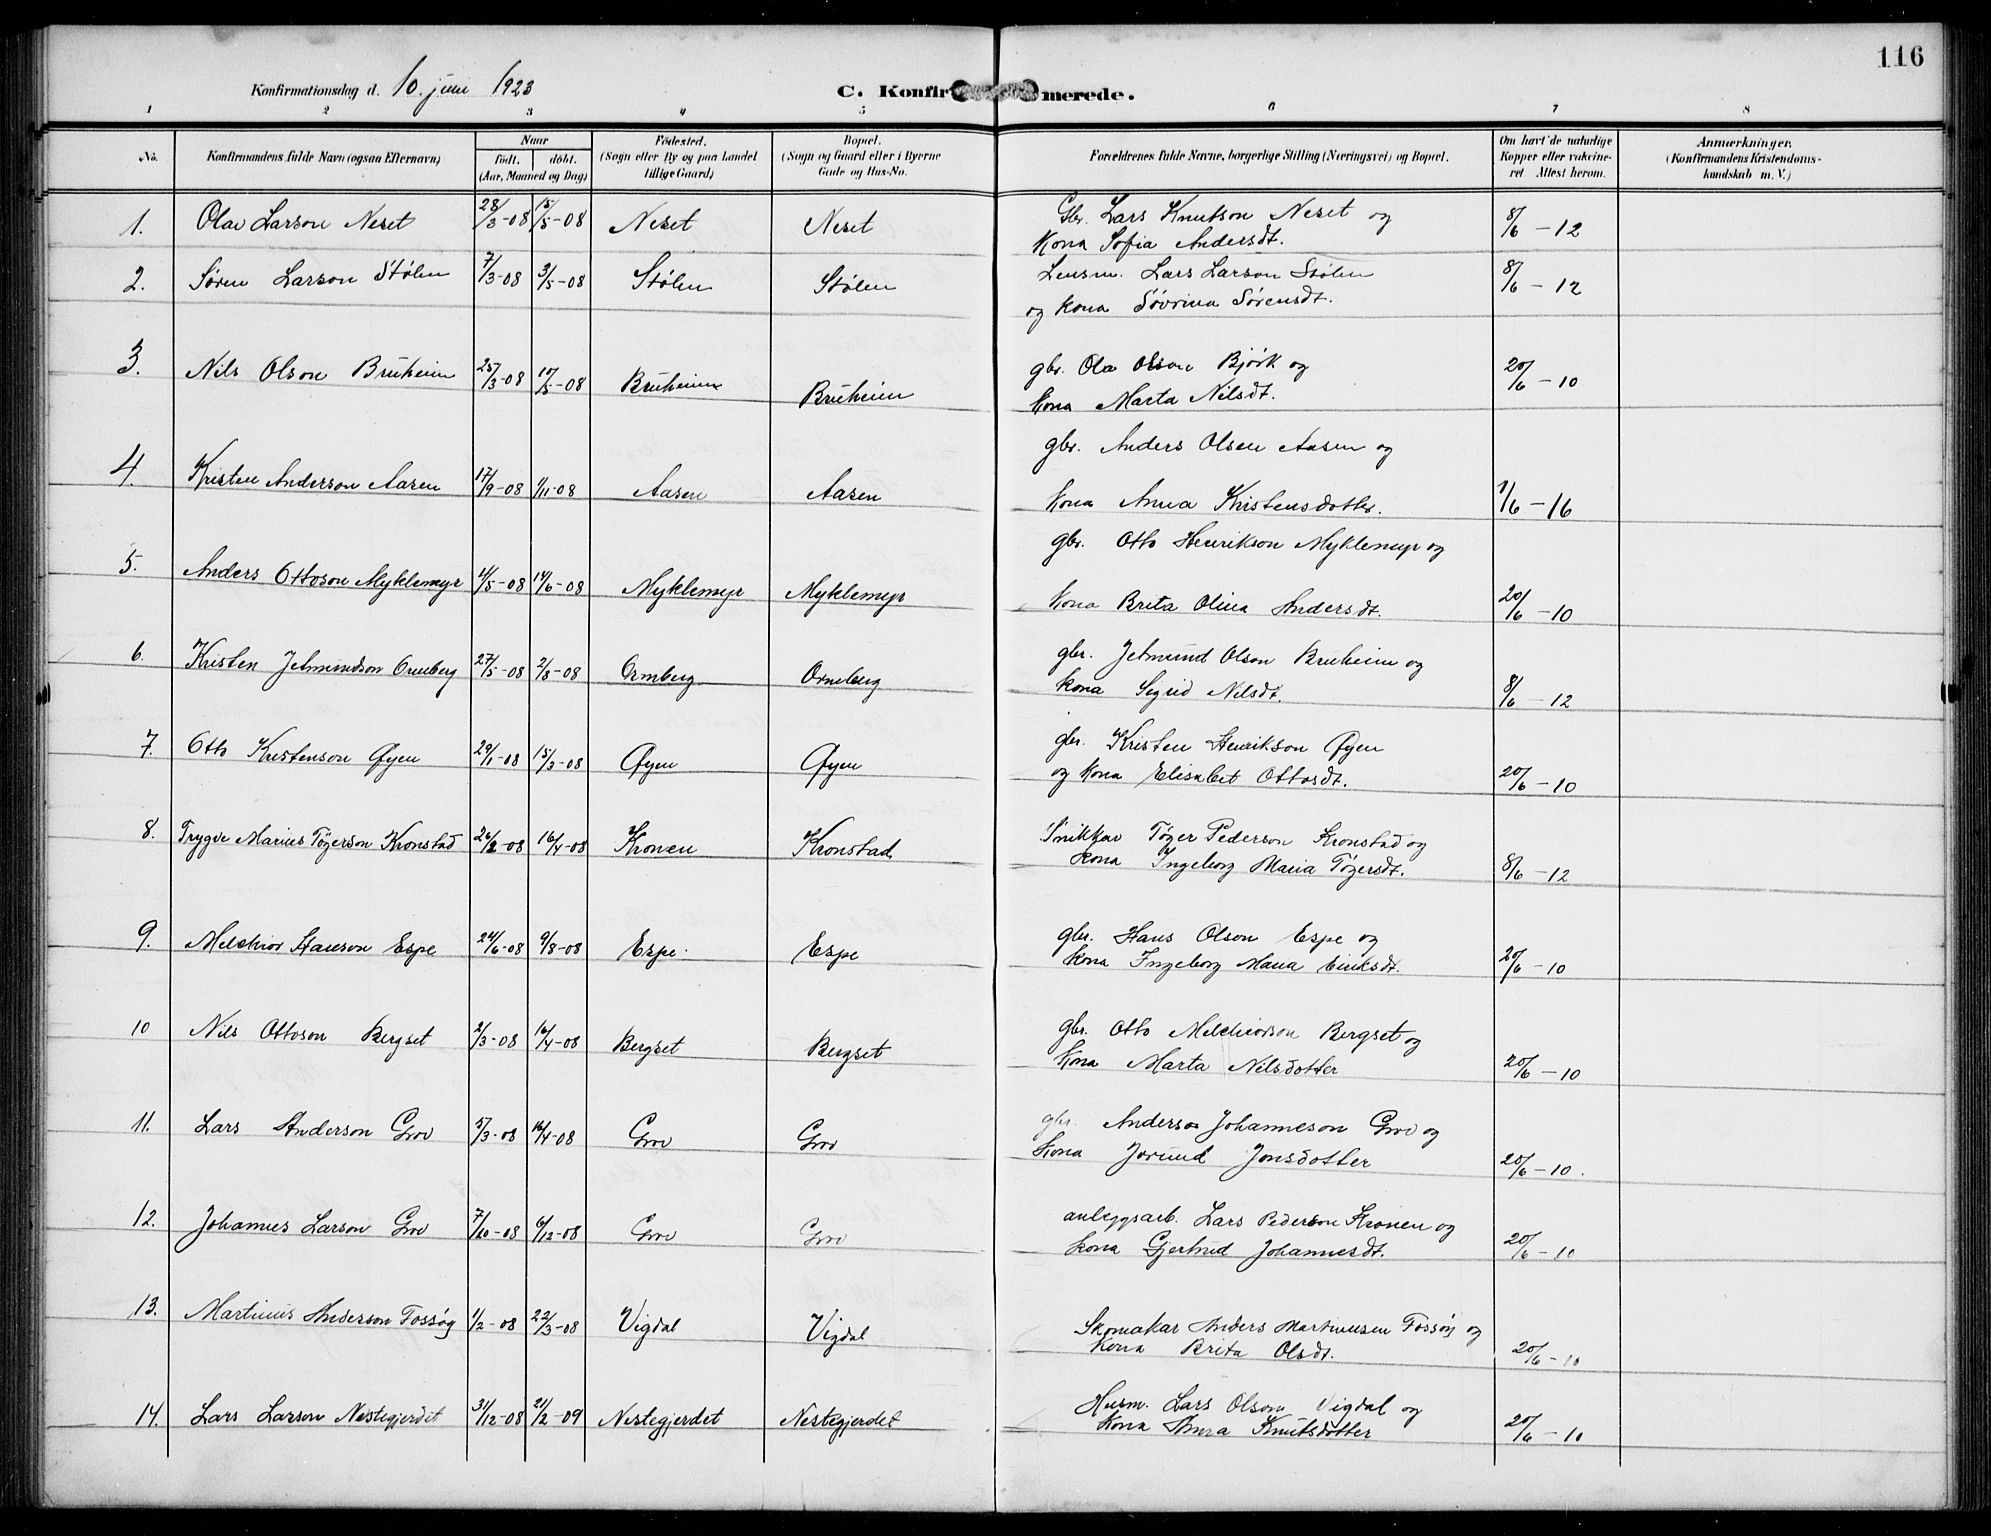 116
Konfirmationsdag d. 10. juni 1923 C. Konfirmerede.
1 2 3 4 5 6 7 8
No. Konfirmandens fulde Navn (ogsaa Efternavn) Naar født. døbt. (Aar, Maaned og Dag) Fødested. (Sogn eller By og paa Landet tillige Gaard) Bopæl. (Sogn og Gaard eller i Byerne Gade og Hus-No. Forældrenes fulde Navne, borgerlige Stilling (Næringsvei) og Bopæl. Om havt de naturlige Kopper eller vakcineret Attest herom. Anmærkninger, (Konfirmandens Kristendomskundskab m. V.)
1. Olav Larson Neset 28/3-08 15/5-08 Neset Neset Gbr. Lars Knutson Neset og
Kona Sofia Andersdt. 8/6 - 12
2. Søren Larson Stølen 7/3-08 3/5-08 Stølen Stølen Lensm. Lars Larson Stølen 8/6 - 12
og kona Søvrina Sørensdt.
3. Nils Olson Bruheim 25/3-08 10/5-08 Bruheim Bruheim gbr. Ola Olson Bjørk og
Kona Marta Nilsdt. 20/6 - 10
4. Kristen Anderson Aasen 17/9-08 1/11-08 Aasen Aasen gbr. Anders Olsen Aasen og
Kona Anna Kristensdotter. 1/6 - 16
5. Anders Ottoson Myklemyr 11/5-08 14/6-08 Myklemyr Myklemyr gbr. Otto Henrikson Myklemyr og
Kona Brita Olina Andersdt. 20/6 - 10
6. Kristen Jetmundson Ormberg 27/5-08 2/8-08 Ormberg Ormberg gbr. Jetmund Olson Bruheim og
Kona Sigrid Nilsdt. 8/6 - 12
7. Otto Kristenson Øyen 29/1-08 15/3-08 Øyen Øyen gbr. Kristen Henrikson Øyen
og Kona Elisabet Ottosdt. 20/6 - 10
8. Trygve Marius Tøgerson Kronstad 26/2-08 16/4-08 Kronen Kronstad Snikkar Tøger Pederson Kronstad og
Kona Ingeborg Maria Tøgersdt. 8/6 - 12
9. Melchior Hanson Espe 24/6-08 9/8-08 Espe. Espe gbr. Hans Olson Espe og
Kona Ingeborg Maria Eiriksdt. 20/6 - 10
10 Nils Ottoson Bergset 2/3-08 16/4-08 Bergset Bergset gbr. Otto Melchiorson Bergset og
Kona Marta Nilsdotter 20/6 - 10
11. Lars Anderson Grov 5/3-08 16/4-08 Grov Grov gbr. Anders Johanneson Grov og
Kona Jorund Jonsdotter 20/6 - 10.
12. Johannes Larson Grov 7/10-08 6/12-08 Grov Grov anleggsarb. Lars Pederson Kronen og
Kona Gjertrud Johannesdt. 20/6 - 10
13. Martinus Anderson Fossøy 1/2-08 22/3-08 Vigdal Vigdal Skomakar Anders Martinusen Fossøy og
Kona Brita Olsdt. 20/6 - 10
14. Lars Larson Nestegjerdet 31/12-08 21/2-09 Nestegjerdet Nestegjerdet Husm. Lars Olson Vigdal og
Kona Anna Knutsdotter 20/6 - 10